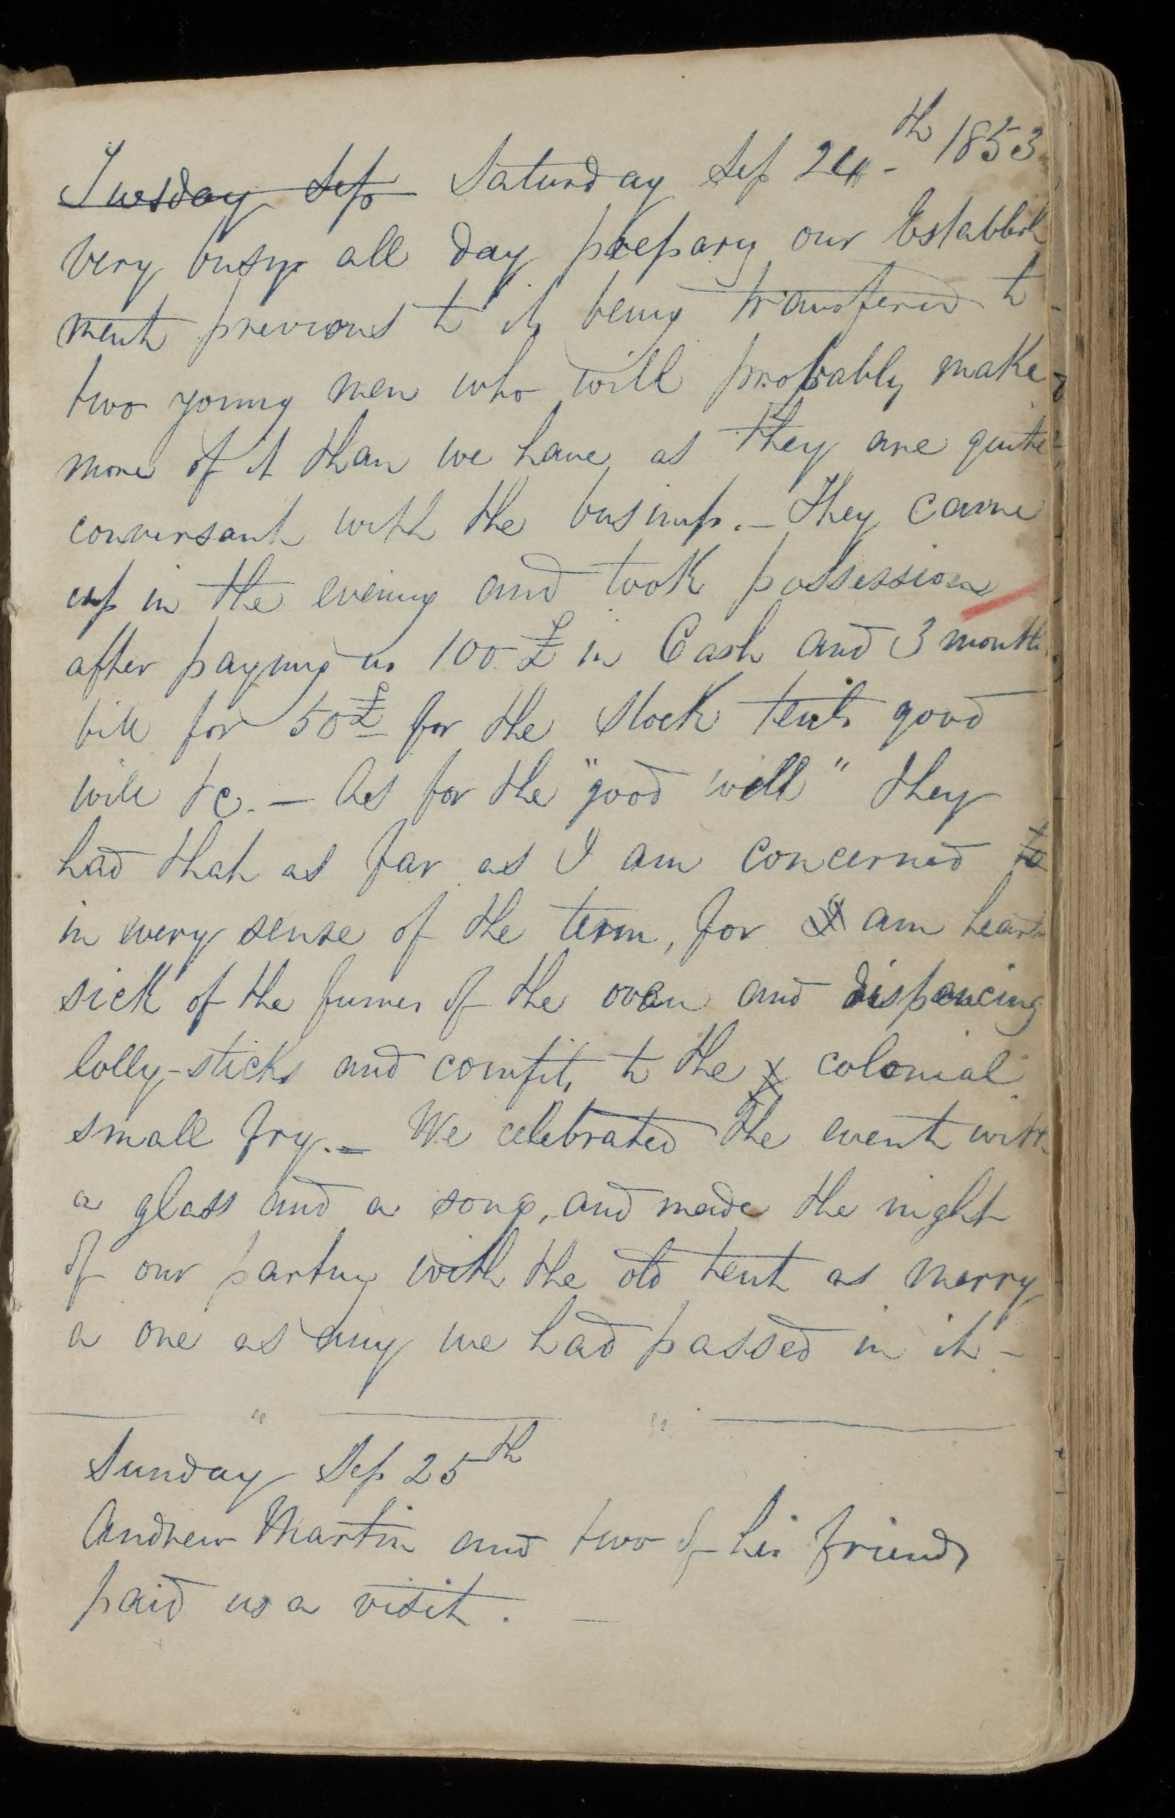 Tuesday Sep Saturday Sep 24th 1853
very busy all day prepary our Establish
ment previous to it being transfered to
two young men who will probably make
more of it than we have as they are quite
conversant with the business. — They came
up in the evening and took possession
after paying us 100 £ in Cash and 3 months
bill for 50 £ for the Stock tents good
will &c. — As for the "good will" they
had that as far as I am concerned to
in every sense of the term, for I am heart
sick of the fumes of the oven and dispencing
lolly-sticks and comfits to the colonial
small fry. — We celebrated the event with
a glass and a song, and made the night
of our parting with the old tent as merry
a one as any we had passed in it —
Sunday Sep 25th
Andrew Martin and two of his friends
paid us a visit. —